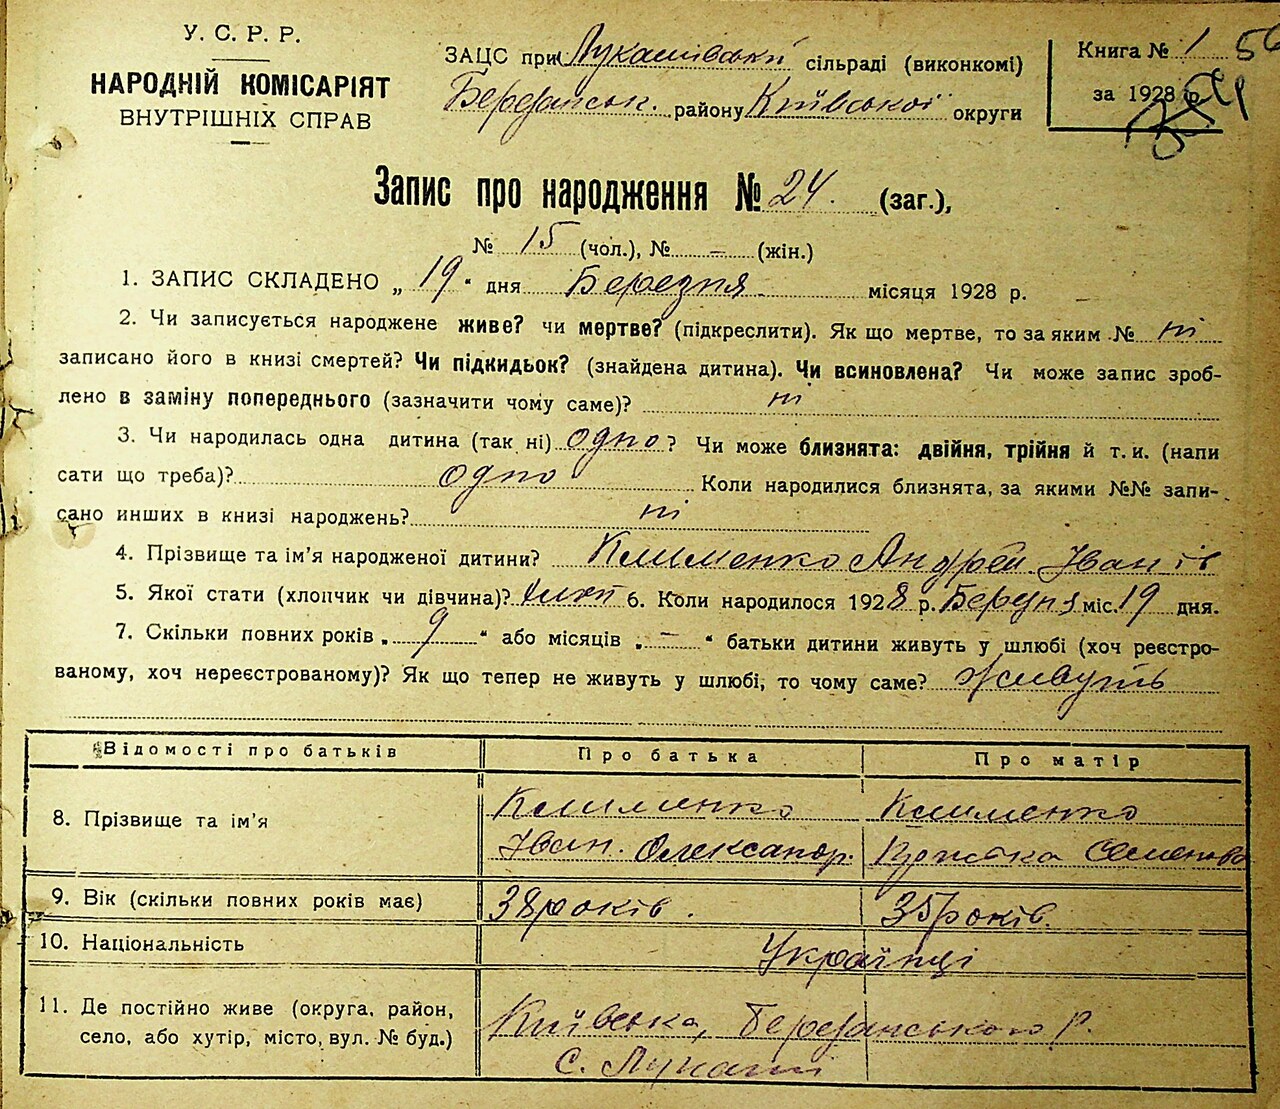 У. С. Р. Р.
НАРОДНІЙ КОМІСАРІЯТ
ВНУТРІШНІХ СПРАВ
ЗАЦС при Лукашівській сільраді (виконкомі)
Березанськ. району Київської округи
Книга № 1 56
за 1928 р.
Запис про народження № 24. (заг.),
№ 15 (чол.), № – (жін.)
1. ЗАПИС СКЛАДЕНО „ 19 “ дня Березня місяця 1928 р.
2. Чи записується народжене живе? чи мертве? (підкреслити). Як що мертве, то за яким № ні
записано його в книзі смертей? Чи підкидьок? (знайдена дитина). Чи всиновлена? Чи може запис зроб-
лено в заміну попереднього (зазначити чому саме)? ні
3. Чи народилась одна дитина (так ні) одно ? Чи може близнята: двійня, трійня й т. и. (напи
сати що треба)? одно Коли народилися близнята, за якими №№ запи-
сано инших в книзі народжень? ні
4. Прізвище та ім'я народженої дитини? Клименко Андрей Іванів
5. Якої стати (хлопчик чи дівчина)? 6. Коли народилося 1928 р. Березня міс. 19 дня.
7. Скільки повних років „ 9 “ або місяців „ – “ батьки дитини живуть у шлюбі (хоч реєстро-
ваному, хоч нереєстрованому)? Як що тепер не живуть у шлюбі, то чому саме? Живуть
Відомості про батьків Про батька Про матір
8. Прізвище та ім'я
Клименко Клименко
Іван. Олександр. Семенова
9. Вік (скільки повних років має) 38 років. 35 років.
10. Національність Українці
11. Де постійно живе (округа, район,
село, або хутір, місто, вул. № буд.)
Київська, Березанського р.
с. Лукаші